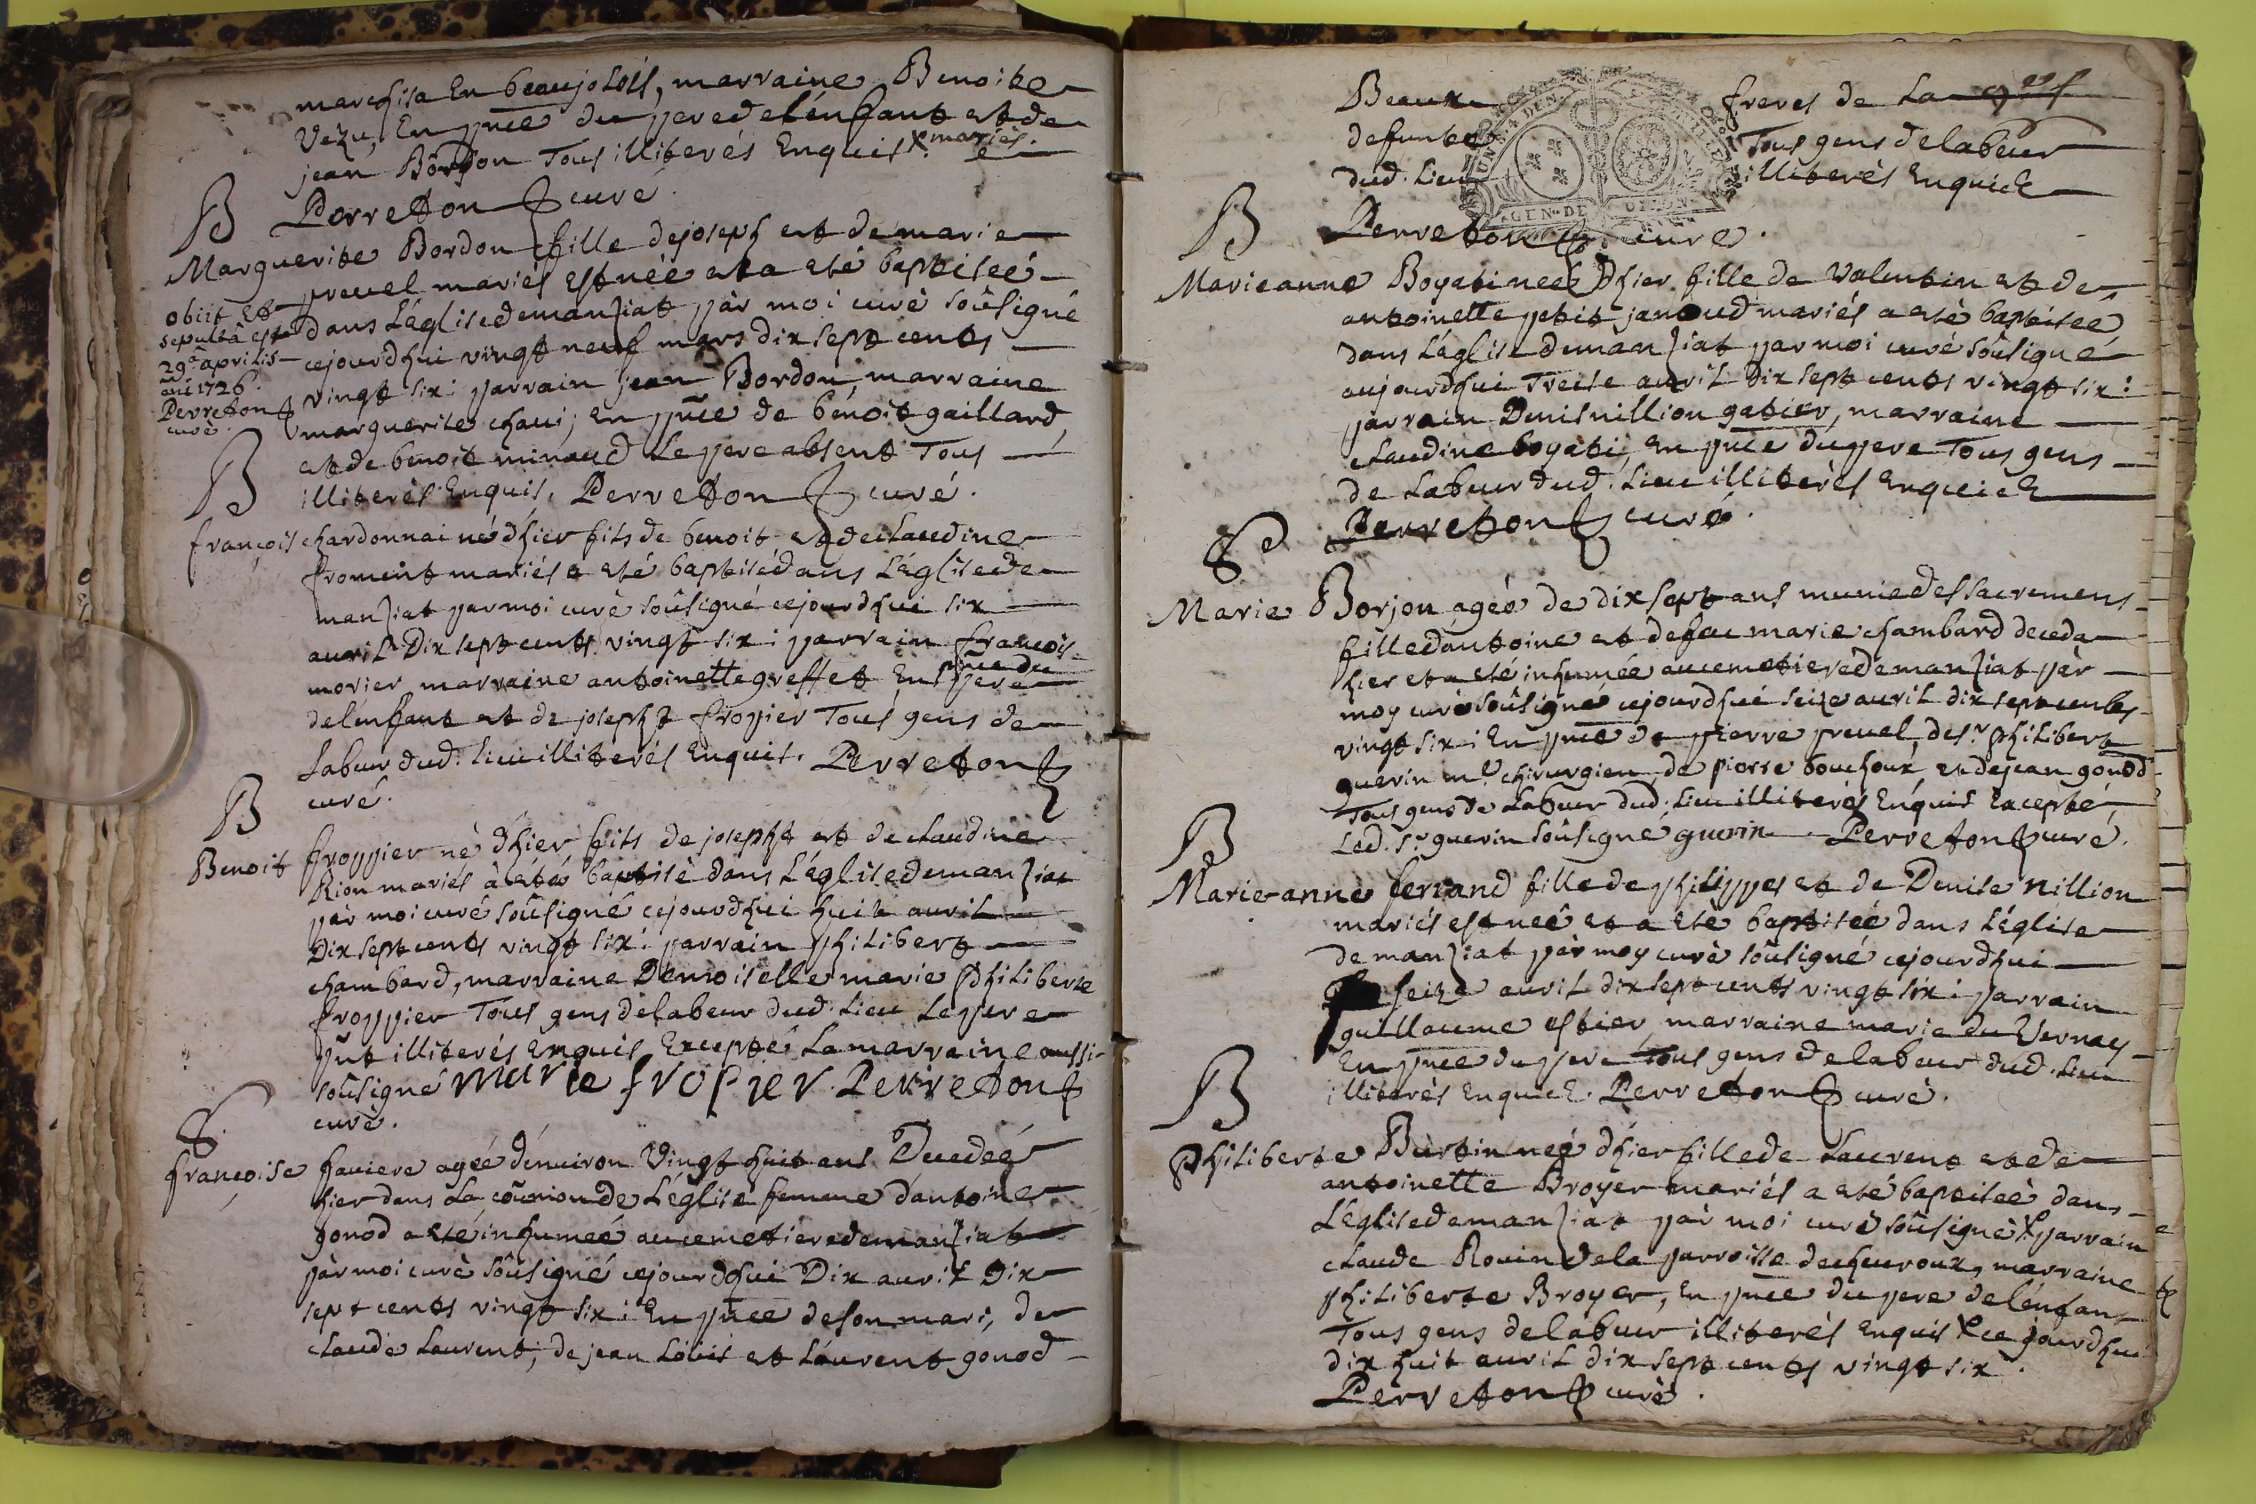 marchisa En beaujolois, marraine Benoite
Vezu, En pnce du pere de lénfant et de
jean Bordon Tous illiterés Enquis x mariés.
Perreton curé.
B
Marguerite Bordon fille de joseph et de marie
preuel mariés est née et a eté baptiseé
dans Léglise de manziat pàr moi curè soûsigné
cejourdhui vingt neuf mars dix sept cents
vingt six: parrain jean Bordon, marraine
marguerite chaui; en pnce de benoit gaillard,
et de benoit minaud Le pere absent Tous
illiterés Enquis, Perreton curé.
obiit et
sepulta est
29a aprilis
ani 1726.
Perreton
curè.
B
françois chardonnai né dhier fits de benoit et de claudine
froment mariés a eté baptisé dans Léglise de
manziat par moi curè soûsigné cejourdhui six
auril Dix sept cents vingt six: parrain françois
morier marraine antoinette greffet En pnce du pere
delénfant et de josepht froppier Tous gens de
Labeur dud. lieu illiterés Enquis. Perreton
curé.
B
Benoit froppier né dhier fits de josepht et de claudine
Rion mariés à eté baptisè dans Léglise de manziat
pàr moi curé soûsigné cejourdhui huit auril
Dix sept cents vingt six: parrain philibert
chambard, marraine Demoiselle marie philiberte
froppier Tous gens delabeur dud. Lieu Le pere
pnt illiterés enquis Excepté La marraine aussi
soûsigné marie fropier. Perreton
curè.
S.
françoise fauiere agéé dénuiron Vingt huit ans Decedeé
hier dans La cõmnion de Léglise femme dantoine
gonod a eté inhumeé au cemetiere de manziat
pàr moi curè soûsigné cejourdhui Dix auril Dix
sept cents vingt six: En pnce de son mari, de
claude Laurent; de jean Loüis et Laurent gonod
Beaux freres de La
defunte Tous gens delabeur
dud. Lieu illiterés Enquis
Perreton curé.
B
Marieanne Boyati neé dhier fille de Valentin et de
antoinette petit janoud mariés a etè baptiseé
dans Léglise demanziat par moi curè soûsigné
aujourdhui Treise auril dix sept cents vingt six:
parrain Denis nillion gatier, marraine
claudine boyati; En pnce du pere Tous gens
de Labeur dud. Lieu illiterés enquis
Perreton curé.
S
Marie Borjon ageé de dix sept ans munie des sacremens
fille dantoine et de feue marie chambard deceda
hier et a eté inhumée au cemetiere de manziat pàr
moy curè soûsigné cejourdhui seize auril dix sept cents
vingt six: En pnce de pierre preuel, de sr. philibert
guerin me chirurgien de pierre bouchoux, et de jean gonod
Tous gens de Labeur dud. Lieu illiterés Enquis Excepté
Led. sr. guerin soûsigné guerin Perreton curé.
B
Marie-anne ferrand fille de philippes et de Denise nillion
mariés est neé et a eté baptiseé dans Léglise
de manziat pàr moy curè soûsigné cejourdhui
seize auril dix sept cents vingt six: parrain
guillaume estier, marraine marie du Vernay
En pnce du pere Tous gens delabeur dud. Lieu
illiterés Enquis. Perreton curé.
B
philiberte Burtin neé dhier fille de Laurens et de
antoinette Broyer mariés a eté baptiseè dans
Léglise de manziat pàr moi curè soûsigné x parrain
claude Rouin dela parroisse de chevroux, marraine
philiberte Broyer, En pnce du pere delénfant
Tous gens delabeur illiterés Enquis x ce jourdhui
dix huit auril dix sept cents vingt six.
Perreton curè.